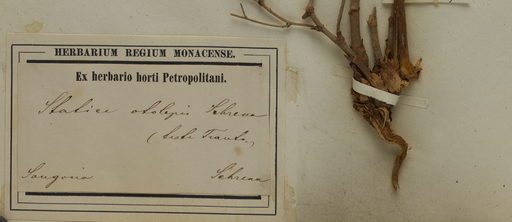 HERBARIUM REGIUM MONACENSE.
Ex herbario horti Petropolitani.
Statice otolepis Schrenk
(teste Trautv.)
Songoria Schrenk